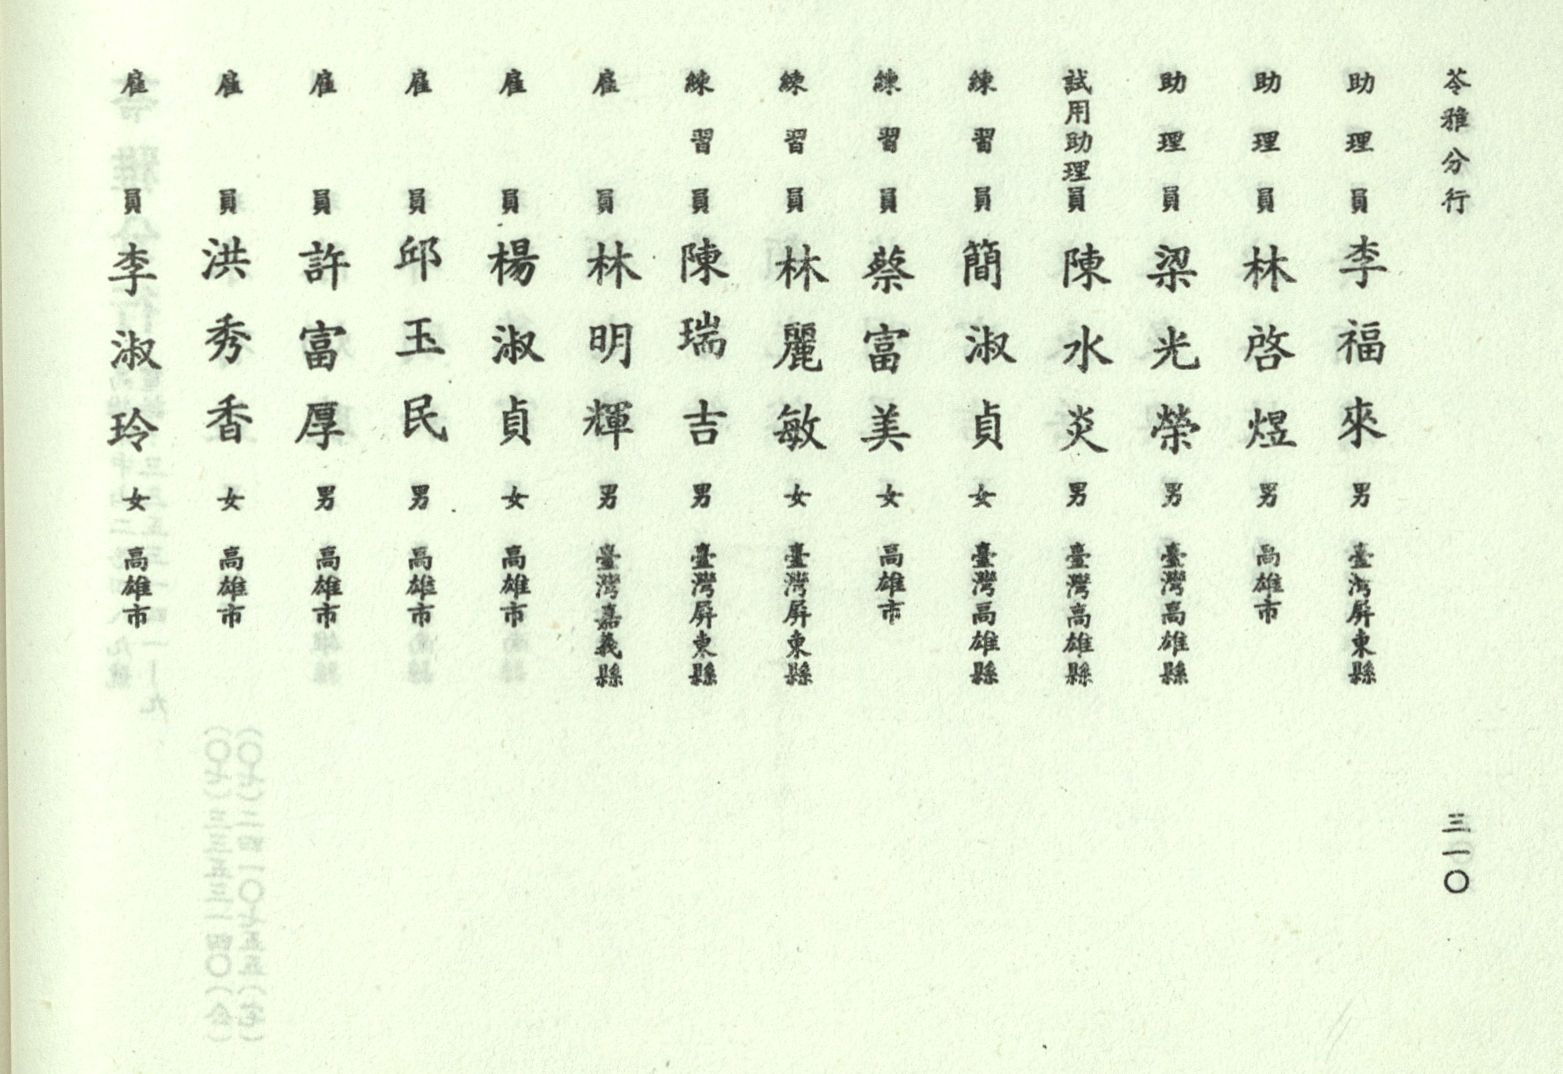 苓雅分行
三一〇
助理員 李福來 男 臺灣屏東縣
助理員 林啓煜 男 高雄市
助理員 梁光榮 男 臺灣高雄縣
試用助理員 陳水炎 男 臺灣高雄縣
練習員 簡淑貞 女 臺灣高雄縣
練習員 蔡富美 女 高雄市
練習員 林麗敏 女 臺灣屏東縣
練習員 陳瑞吉 男 臺灣屏東縣
雇員 林明輝 男 臺灣嘉義縣
雇員 楊淑貞 女 高雄市
雇員 邱玉民 男 高雄市
雇員 許富厚 男 高雄市
雇員 洪秀香 女 高雄市
雇員 李淑玲 女 高雄市